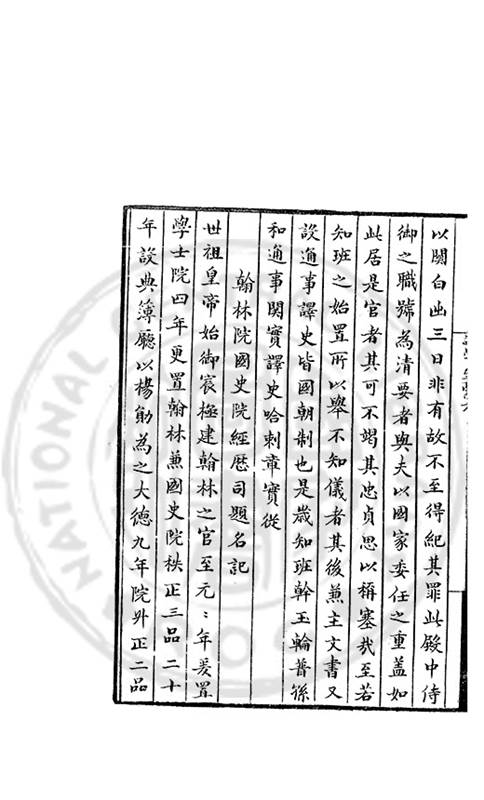 以關白凼三日非有故不至得紀其罪此殿中侍
御之職號為清要者與夫以國家委任之重蓋如
此居是官者其可不竭其忠貞思以稱塞哉至若
知班之始置所以舉不知儀者其後兼主文書又
設通事譯史皆國朝制也是歲知班幹玉輪普係
和通事関實譯史哈剌章實從
翰林院國史院經歷司題名記
世祖皇帝始御宸極建翰林之官至元二年爰置
學士院四年更置翰林兼國史院秩正三品二十
年設典簿廳以楊勛為之大德九年院外正二品
NATIONAL